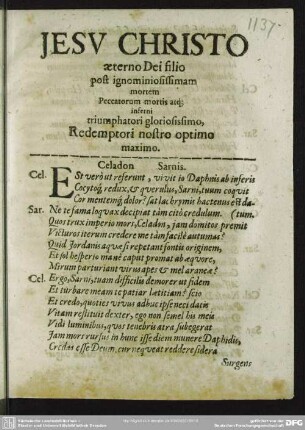 1137.
JESV CHRISTO
æterno Dei filio
post ignominiosissimam
mortem
Peccatorum mortis atq;
inferni
triumphatori gloriosissimo,
Redemptori nostro optimo
maximo.
Celadon. Sarnis.
Cel. Est verbum referunt, vivit io Daphnis ab inferis
Cocytoq; redux, & querulus, Sarni, tuum coquit
Cor mentemq; dolor? sat lachrymis hactenus est da-
Sar. Ne te fama loquax decipiat tàm citò credulum. (tum.
Quos trux imperio mors, Celadon, jam domitos premit
Victuros iterum credere me tàm facilè autumas?
Quid Jordanis aquæ si repetant fontis originem,
Et sol hesperio manè caput promat ab æquore,
Mirum parturiant virus apes & mel araneæ?
Cel. Ergo, Sarni, tuam difficili demorer ut fidem
Et turbare meam te patiar lætitiam? scio
Et credo, quoties vivus adhuc ipse neci datis
Vitam restituit dexter, ego non semel his meis
Vidi luminibus, quos tenebris atra subegerat
Jam mors rursus in hunc isse diem munere Daphidis,
Credes esse Deum, cur nequeat reddere sidera
Surgens